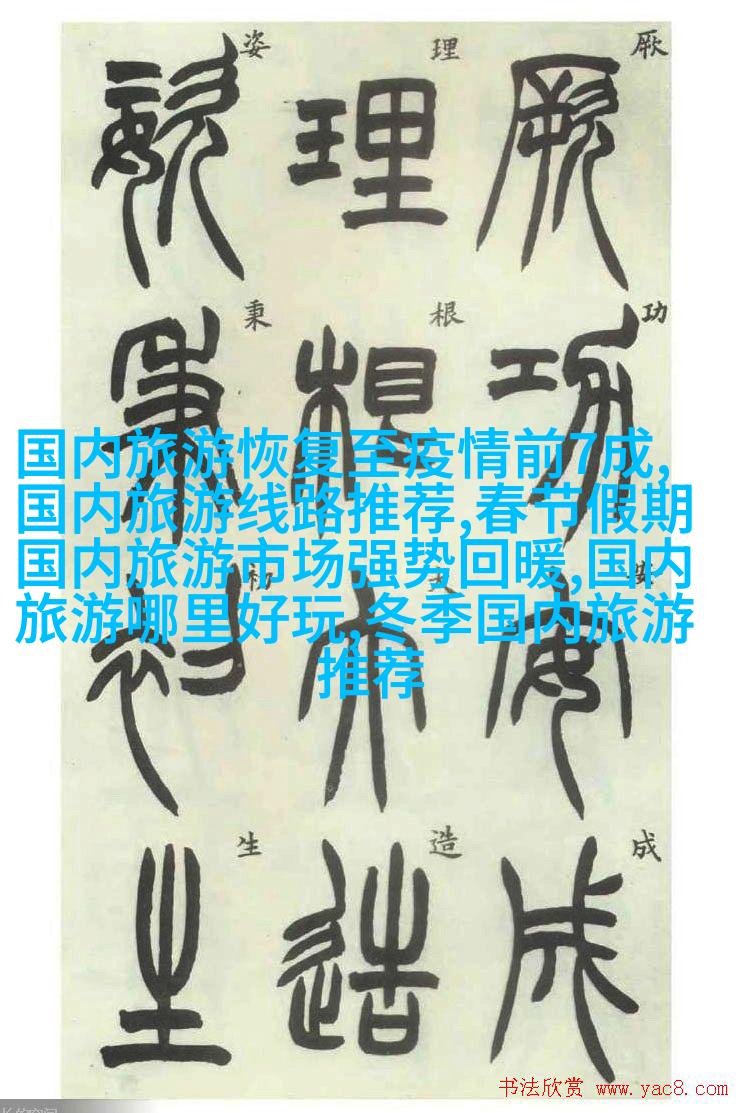 厥功安成
厥功安成
理根大造
理根造
姿秉初生
姿秉初生
国内旅游恢复至疫情前7成,
国内旅游线路推荐,春节假期
国内旅游市场强势回暖,国内
旅游哪里好玩,冬季国内旅游
推荐
书法欣赏 www.yac8.com